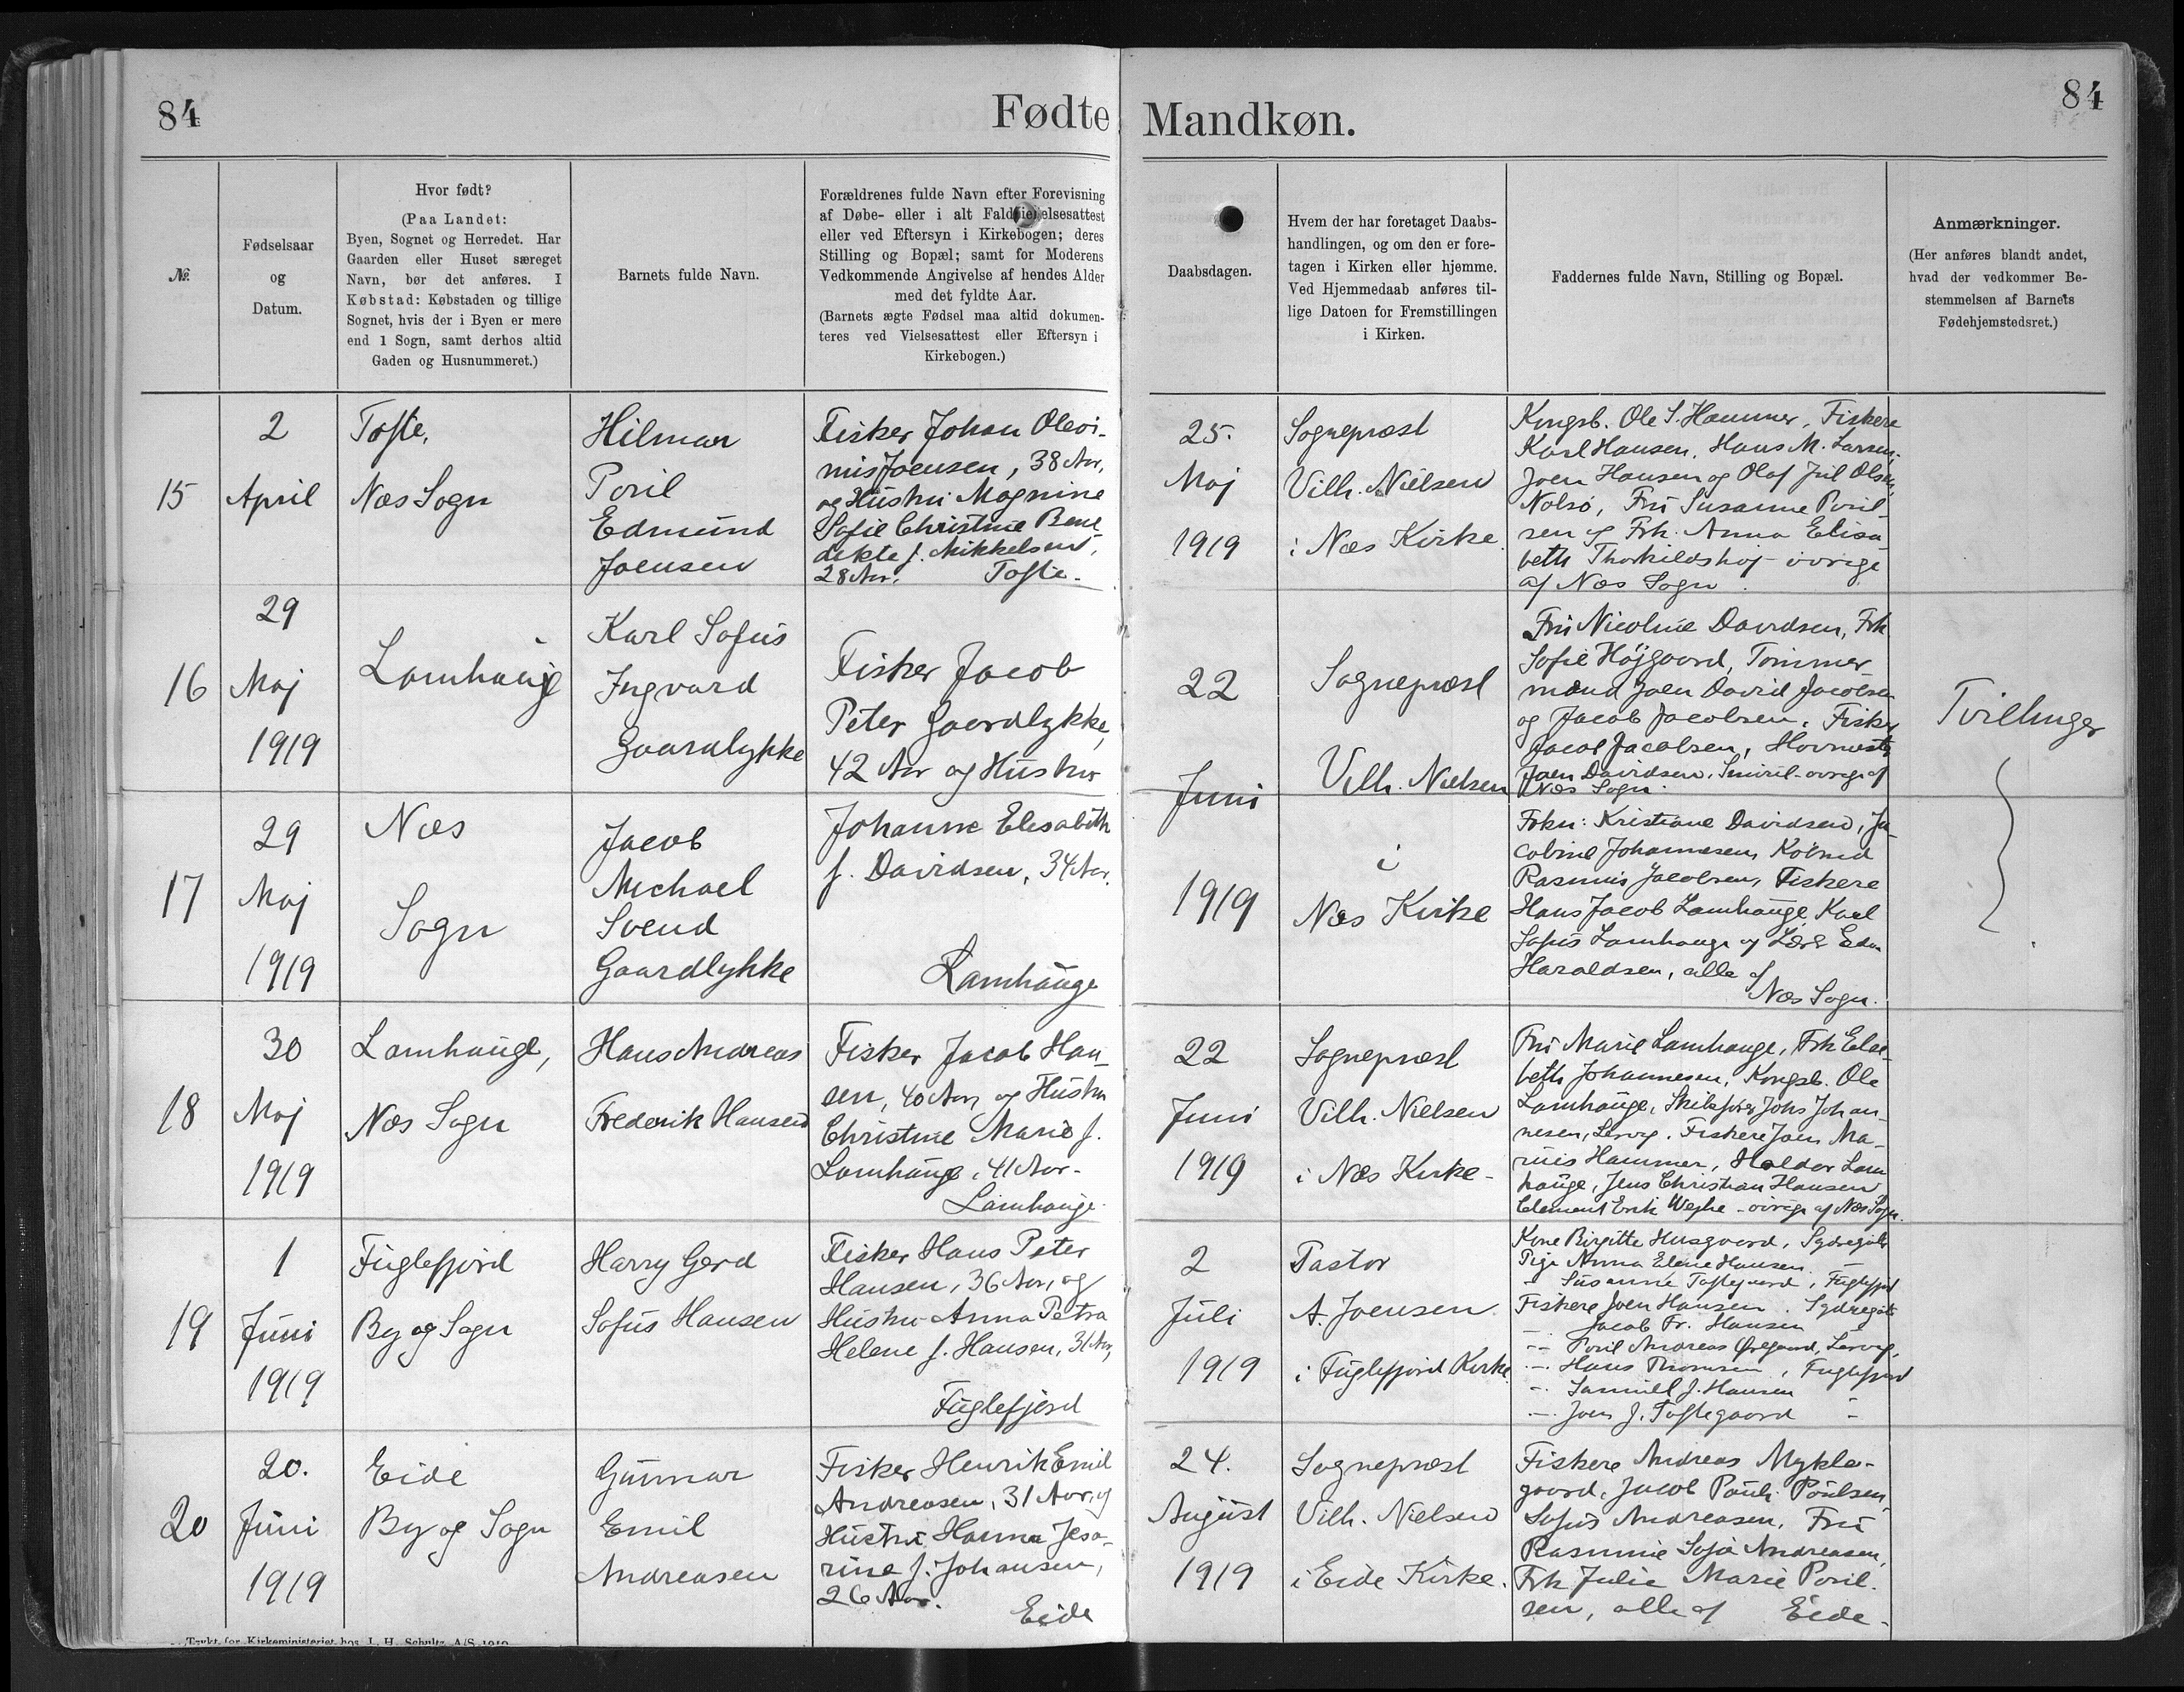 84
Fødte Mandkøn.
84
№
Fødselsaar
og
Datum.
Hvor født?
(Paa Landet:
Byen, Sognet og Herredet. Har
Gaarden eller Huset særeget
Navn, bør det anføres. I
Købstad: Købstaden og tillige
Sognet, hvis der i Byen er mere
end 1 Sogn, samt derhos altid
Gaden og Husnummeret.)
Barnets fulde Navn.
Forældrenes fulde Navn efter Forevisning
af Døbe- eller i alt Fald elsesattest
eller ved Eftersyn i Kirkebogen; deres
Stilling og Bopæl; samt for Moderens
Vedkommende Angivelse af hendes Alder
med det fyldte Aar.
(Barnets ægte Fødsel maa altid dokumen-
teres ved Vielsesattest eller Eftersyn i
Kirkebogen.)
Daabsdagen.
Hvem der har foretaget Daabs-
handlingen, og om den er fore-
tagen i Kirken eller hjemme.
Ved Hjemmedaab anføres til-
lige Datoen for Fremstillingen
i Kirken.
Faddernes fulde Navn, Stilling og Bopæl.
Anmærkninger.
(Her anføres blandt andet,
hvad der vedkommer Be-
stemmelsen af Barnets
Fødehjemstedsret.)
15
2
April
Tofte,
Næs Sogn
Hilmar
Poul
Edmund
Joensen
Fisker Johan Olevi-
nus Joensen, 38 Aar,
og Hustru Magnine
Sofie Christine Bene
dikte f. Mikkelsen,
28 Aar. Tofte.
25.
Maj
1919
Sognepræst
Vilh. Nielsen
i Næs Kirke
Kongsb. Ole S. Hammer, Fiskere
Karl Hansen, Hans M. Larsen,
Joen Hansen og Olaf Jul Olsen,
Nolsø, Fru Susanne Poul-
sen og Frk. Anna Elisa
beth Thorkildshøj øvrige
af Næs Sogn
16
29
Maj
1919
Lamhauge
Karl Sofus
Ingvard
Gaardlykke
Fisker Jacob
Peter Gaardlykke,
42 Aar og Hustru
22
Juni
1919
Sognepræst
Vilh. Nielsen
i
Næs Kirke
Fru Nicoline Davidsen, Frk
Sofie Højgaard, Tømmer
mænd Joen David Jacobsen
og Jacob Jacobsen, Fisker
Jacob Jacobsen, Havnestr
Joen Davidsen, øvrige af
Næs Sogn.
Tvillinger
17
29
Maj
1919
Næs
Sogn
Jacob
Michael
Svend
Gaardlykke
Johanne Elisabeth
f. Davidsen, 34 Aar.
Lamhauge
Frkn: Kristiane Davidsen, Ja
cobine Johannesen, Købmd
Rasmus Jacobsen, Fiskere
Hans Jacob Lamhauge, Karl
Sofus Lamhauge og Lærer
Haraldsen, alle af
Næs Sogn.
18
30
Maj
1919
Lamhauge,
Næs Sogn
Hans Andreas
Frederik Hansen
Fisker Jacob Han-
sen, 40 Aar, og Hustru
Christine Marie f.
Lamhauge, 41 Aar-
Lamhauge
22
Juni
1919
Sognepræst
Vilh. Nielsen
i Næs Kirke-
Fru Marie Lamhauge, Frk Elisa-
beth Johannesen, Kongsb. Ole
Lamhauge, Skibsfører Johs Johan-
nesen, Lervig. Fiskere Joen Ma-
rius Hammer, Haldor Lam
hauge, Jens Christian Hansen
Clement Erik Weyhe - øvrige af Næs Sogn.
19
1
Juni
1919
Fuglefjord
By og Sogn
Harry Gerd
Sofus Hansen
Fisker Hans Peter
Hansen, 36 Aar, og
Hustru Anna Petra
Helene f. Hansen, 31 Aar,
Fuglefjord
2
Juli
1919
Pastor
A. Joensen
i Fuglefjord Kirke
Kone Birgitte Husgaard, Sydregøte
Pige Anna Elene Hansen. —
- Susanne Toftegaard, Fuglefjord
Fiskere Joen Hansen. Sydregøte
Jacob Fr. Hansen
— Poul Andreas Ørgaard, Lervig,
— Hans Thomsen, Fuglefjord
— Samuel J. Hansen
— Joen J. Toftegaard —
20
20.
Juni
1919
Eide
By og Sogn
Gunnar
Emil
Andreasen
Fisker Henrik Emil
Andreasen, 31 Aar, og
Hustru Hanna Jesa-
rine f. Johansen,
26 Aar.
Eide
24.
August
1919
Sognepræst
Vilh. Nielsen
i Eide Kirke.
Fiskere Andreas Mykle-
gaard, Jacob Pauli Poulsen,
Sofus Andreasen, Fru
Rasmine Sofia Andreasen,
Frk Julie Marie Poul-
sen, alle af Eide-
Trykt for Kirkeministeriet hos J. H. Schultz A/S 1919